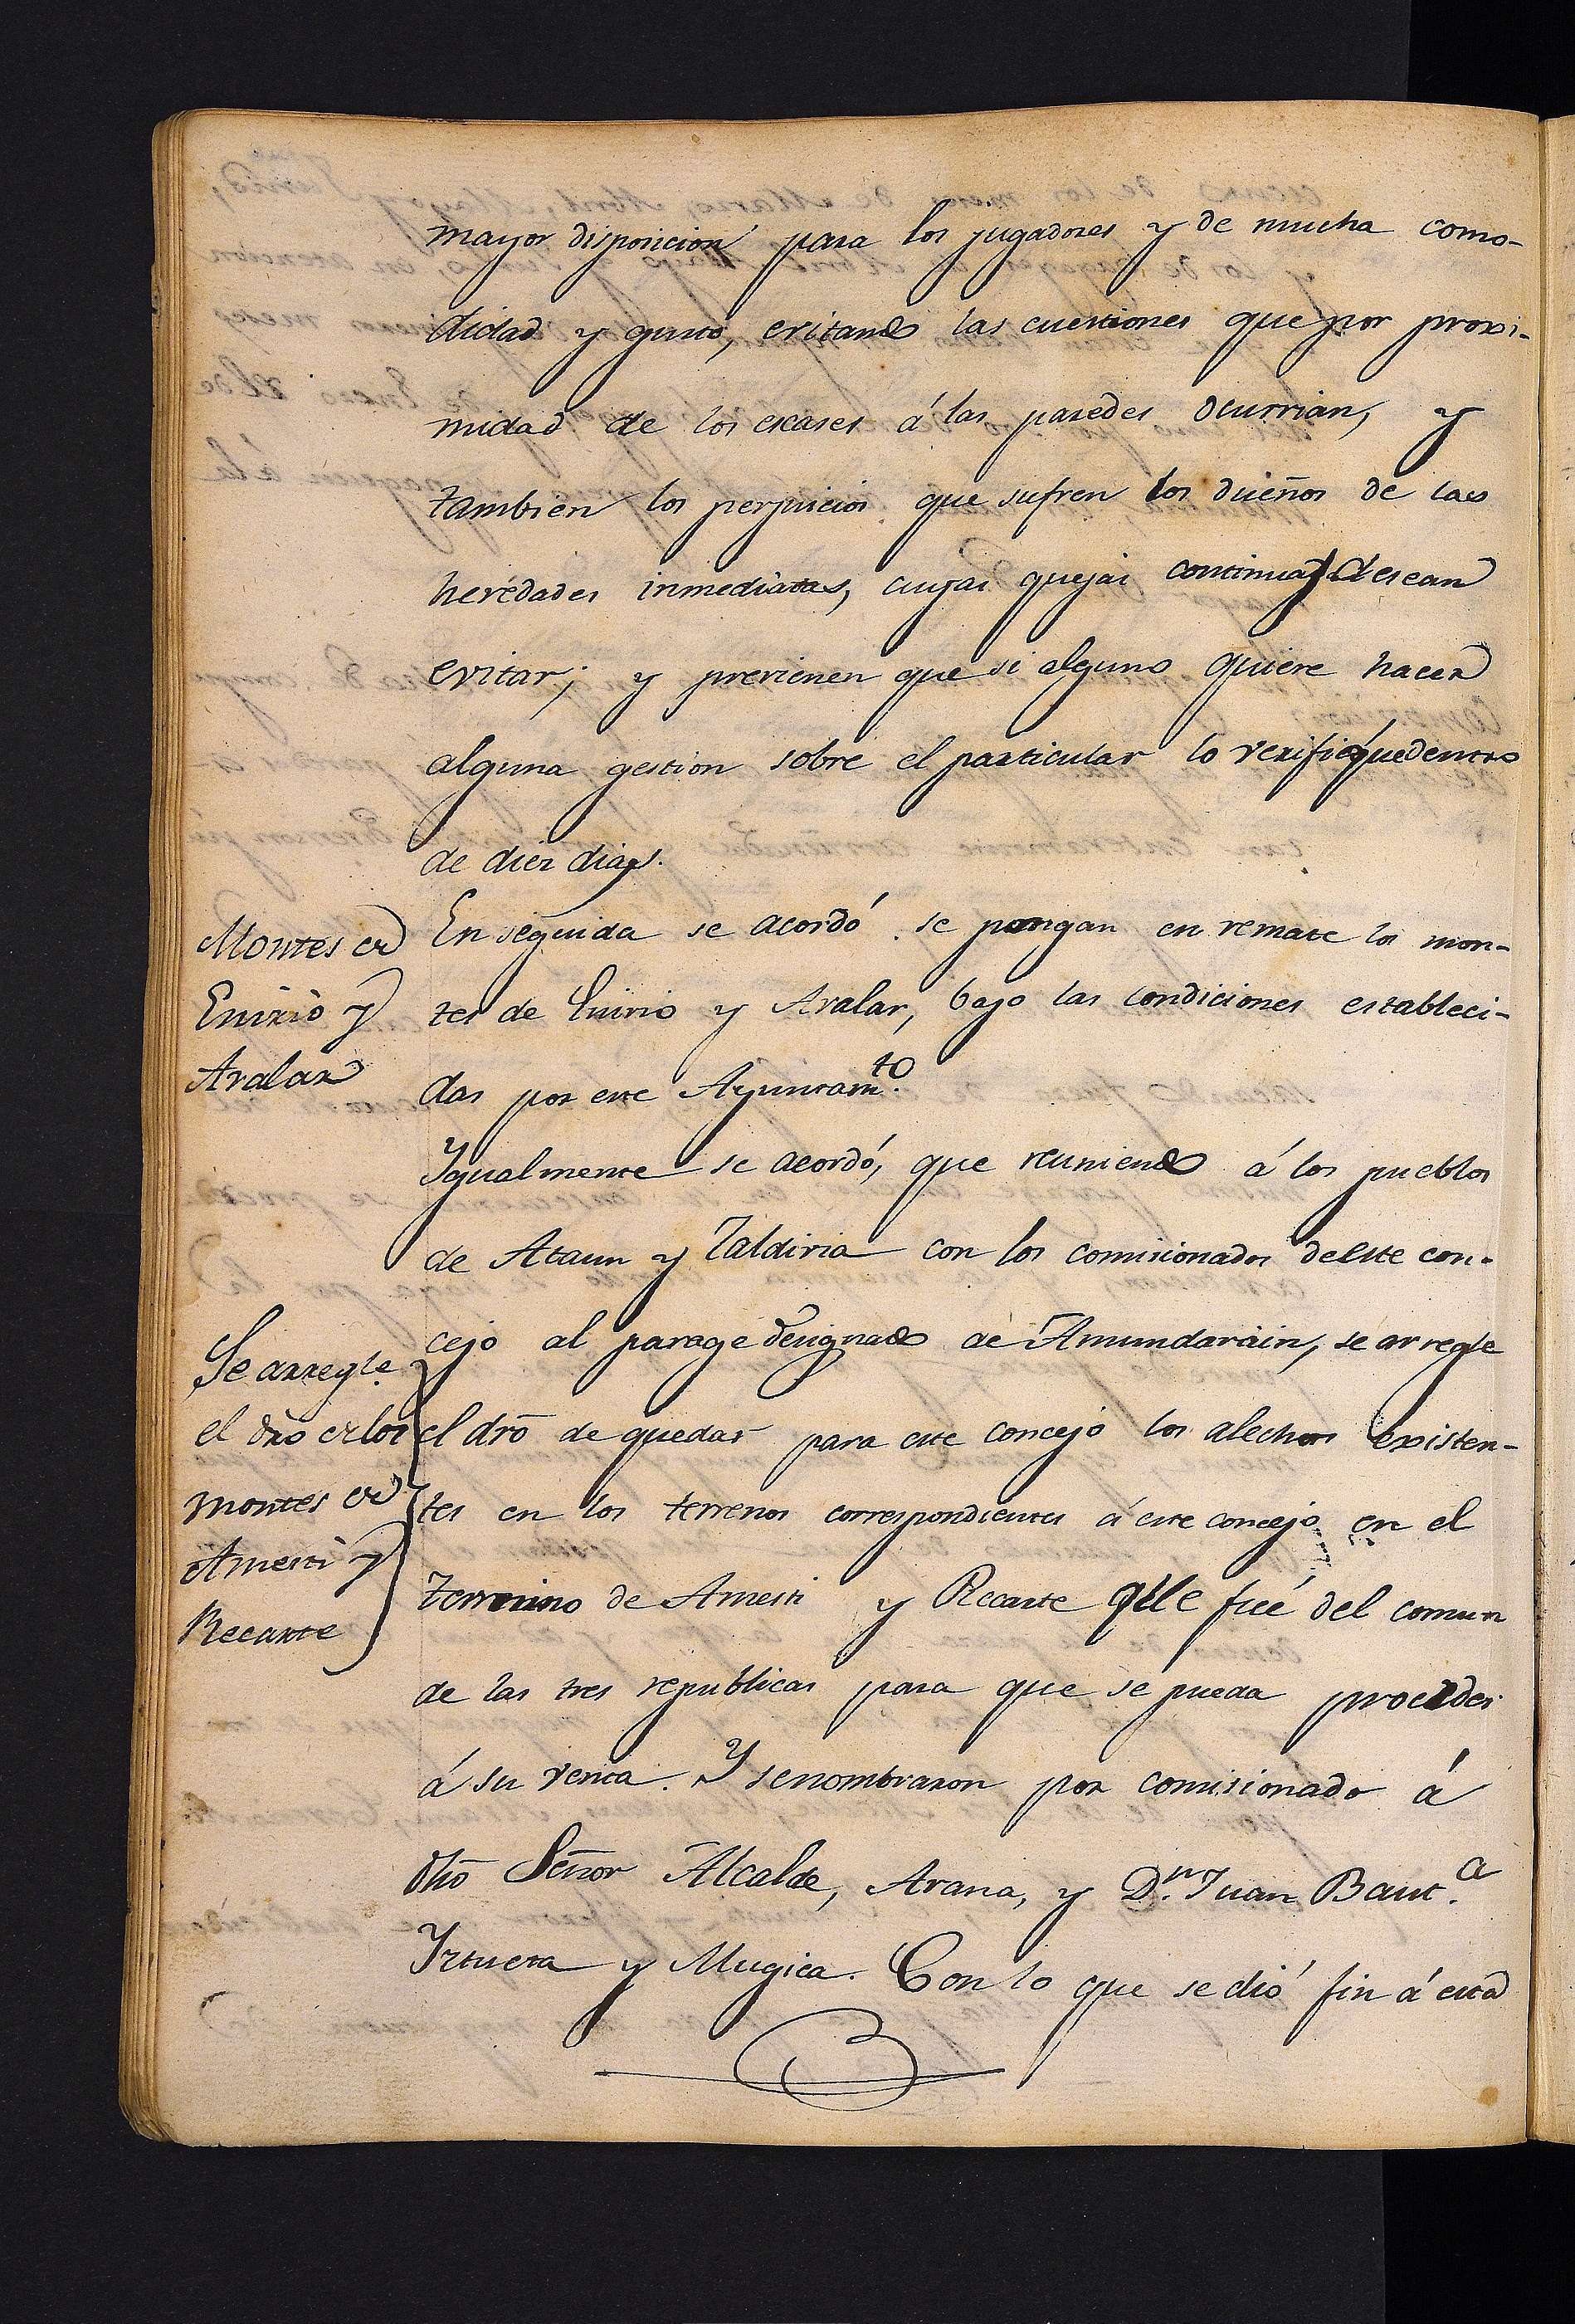 mayor disposicion para los jugadores y de mucha como-
didad y gusto, evitando las cuestiones que por proxi-
midad de los escases á las paredes ocurrian, y
tambien los perjuicios que sufren los dueños de las
heredades inmediatas, cuyas quejas continuas desean
evitar; y previenen que si alguno quiere hacer
alguna gestion sobre el particular lo verifique dentro
de diez dias.
Montes de
Enirio y
Aralar
En seguida se acordó se pongan en remate los mon-
tes de Enirio y Aralar, bajo las condiciones estableci-
das por este Ayuntam.to
Ygualmente se acordó, que reuniendo á los pueblos
de Ataun y Zaldivia con los comisionados de este con-
cejo al parage designado de Amundarain, se arregle
el dro de quedar para este concejo los alechos existen-
tes en los terrenos correspondientes á este concejo en el
termino de Amesti y Recarte que fué del comun
de las tres republicas para que se pueda proceder
á su venta. Y se nombraron por comisionado á
dho Señor Alcalde, Arana, y D.n Juan Baut.a
Yrtueta y Mugica. Con lo que se dió fin á esta
Se arregle
el dro de los
montes de
Amesti y
Recarte